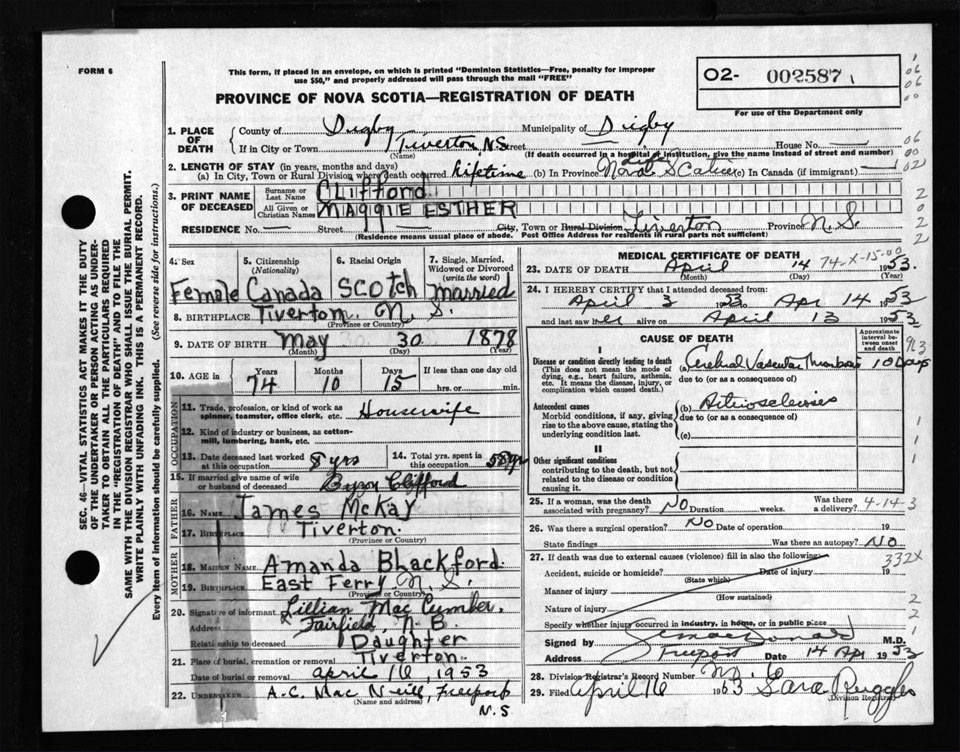 FORM 6
This form, if placed in an envelope, on which is printed "Dominion Statistics—Free, penalty for improper
use $50," and properly addressed will pass through the mail "FREE"
O2- 002587
For use of the Department only
PROVINCE OF NOVA SCOTIA—REGISTRATION OF DEATH
1. PLACE OF DEATH
County of Digby Municipality of Digby
If in City or Town Tiverton, N.S Street House No.
(Name) (If death occurred in a hospital or institution, give the name instead of street and number)
2. LENGTH OF STAY (in years, months and days)
(a) In City, Town or Rural Division where death occurred lifetime (b) In Province Nova Scotia (c) In Canada (if immigrant)
3. PRINT NAME OF DECEASED
Surname or Last Name Clifford
All Given or Christian Names MAGGIE ESTHER
RESIDENCE No. — Street — City, Town or Rural Division Tiverton Province N.S.
(Residence means usual place of abode. Post Office Address for residents in rural parts not sufficient)
SEC. 46—VITAL STATISTICS ACT MAKES IT THE DUTY
OF THE UNDERTAKER OR PERSON ACTING AS UNDER-
TAKER TO OBTAIN ALL THE PARTICULARS REQUIRED
IN THE "REGISTRATION OF DEATH" AND TO FILE THE
SAME WITH THE DIVISION REGISTRAR WHO SHALL ISSUE THE BURIAL PERMIT.
WRITE PLAINLY WITH UNFADING INK. THIS IS A PERMANENT RECORD.
Every item of information should be carefully supplied. (See reverse side for instructions.)
4. Sex
Female
5. Citizenship
(Nationality)
Canada
6. Racial Origin
SCOtch
7. Single, Married,
Widowed or Divorced
(write the word)
Married
8. BIRTHPLACE Tiverton N. S.
(Province or Country)
9. DATE OF BIRTH May 30 1878
(Month) (Day) (Year)
10. AGE in Years Months Days If less than one day old
74 10 15 hrs. or min.
OCCUPATION
11. Trade, profession, or kind of work as
spinner, teamster, office clerk, etc. Housewife
12. Kind of industry or business, as cotton-
mill, lumbering, bank, etc.
13. Date deceased last worked
at this occupation 8 yrs
14. Total yrs. spent in
this occupation 58 yr
15. If married give name of wife
or husband of deceased Byron Clifford
FATHER
16. NAME James McKay
17. BIRTHPLACE Tiverton.
(Province or Country)
MOTHER
18. MAIDEN NAME Amanda Blackford.
19. BIRTHPLACE East Ferry N. S.
(Province or Country)
20. Signature of informant Lillian MacCumber.
Address Fairfield, N.B.
Relationship to deceased Daughter
21. Place of burial, cremation or removal Tiverton.
Date of burial or removal april 16, 1953
22. UNDERTAKER A.C. Mac Neill, Freeport
(Name and address)
N.S
MEDICAL CERTIFICATE OF DEATH
23. DATE OF DEATH April 14 1953.
(Month) (Day) (Year)
74-X-15-00
24. I HEREBY CERTIFY that I attended deceased from:
April 3 1953 Apr 14 1953
and last saw her alive on April 13 1953
CAUSE OF DEATH
Approximate
interval be-
tween onset
and death
I
Disease or condition directly leading to death
(This does not mean the mode of
dying, e.g., heart failure, asthenia,
etc. It means the disease, injury, or
complication which caused death.)
(a) Cerebral Vascular Thrombosis 10 Days
due to (or as a consequence of)
Antecedent causes
Morbid conditions, if any, giving
rise to the above cause, stating the
underlying condition last.
(b)
due to (or as a consequence of)
(c)
II
Other significant conditions
contributing to the death, but not
related to the disease or condition
causing it.
25. If a woman, was the death
associated with pregnancy? No Duration weeks. Was there
a delivery? 4-14-3
26. Was there a surgical operation? No Date of operation 19
State findings Was there an autopsy? No
27. If death was due to external causes (violence) fill in also the following:
332X
Accident, suicide or homicide? Date of injury 19
(State which)
Manner of injury
(How sustained)
Nature of injury
Specify whether injury occurred in industry, in home, or in public place
Signed by M.D.
Address Freeport Date 14 Apr 1953
28. Division Registrar's Record Number
29. Filed April 16 1953 Sara Ruggles
(Division Registrar)